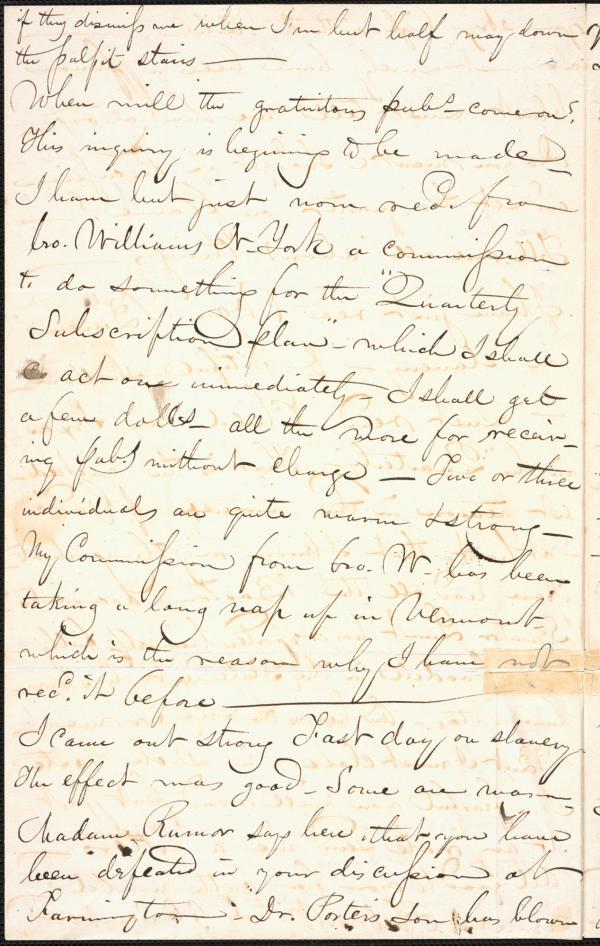 if they dismiss me when I'm but half way down
the pulpit stairs —
When will the gratuitous pubs. come on?
This inquiry is begining to be made —
I have but just now recd. from
bro. Williams N-York a commission
to do something for the "Quarterly
Subscription plan" - which I shall
act on immediately - I shall get
a few dolls - all the more for receiv-
ing pubs without charge — Two or three
individuals are quite warm & strong —
My Commission from bro. W. has been
taking a long nap up in Vermont -
which is the reason why I have not
recd. it before —
I came out strong Fast day on slavery
The effect was good - Some are warm -
Madam Rumor says here that you have
been defeated in your discussion at
Farmington - Dr. Porter's son has blown